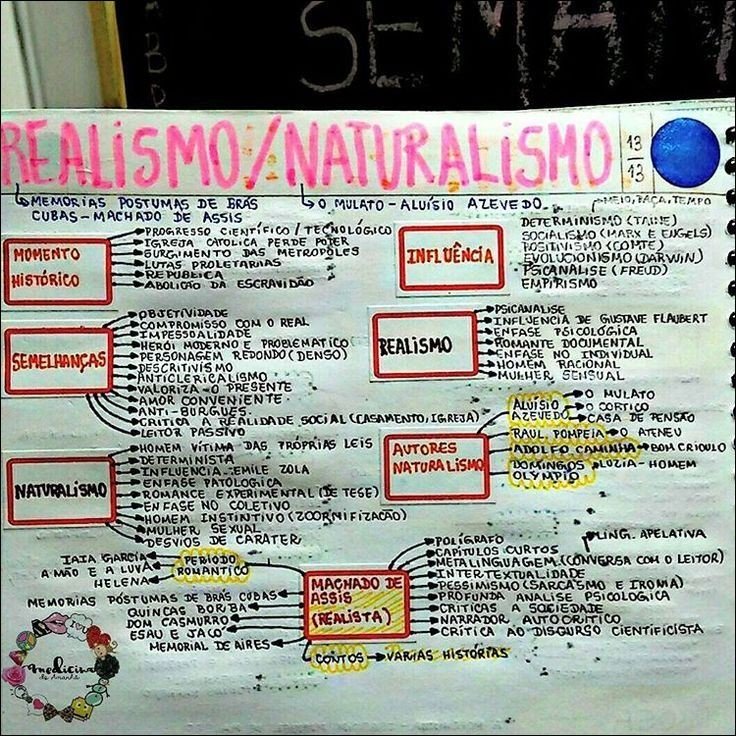 SEMAN
REALISMO/NATURALISMO
13
13
MEMORIAS POSTUMAS DE BRÁS
CUBAS - MACHADO DE ASSIS
O MULATO - ALUÍSIO AZEVEDO
MEIO, RAÇA, TEMPO
MOMENTO
HISTÓRICO
PROGRESSO CIENTÍFICO / TECNOLÓGICO
IGREJA CATOLICA PERDE PODER
SURGIMENTO DAS METROPÓLES
LUTAS PROLETARIAS
REPUBLICA
ABOLIÇÃO DA ESCRAVIDÃO
INFLUÊNCIA
DETERMINISMO (TAINE)
SOCIALISMO (MARX E ENGELS)
POSITIVISMO (COMTE)
EVOLUCIONISMO (DARWIN)
PSICANÁLISE (FREUD)
EMPIRISMO
SEMELHANÇAS
OBJETIVIDADE
COMPROMISSO COM O REAL
IMPESSOALIDADE
HERÓI MODERNO E PROBLEMÁTICO
PERSONAGEM REDONDO (DENSO)
DESCRITIVISMO
ANTICLERICALISMO
VALORIZA O PRESENTE
AMOR CONVENIENTE
ANTI-BURGUES
CRITICA A REALIDADE SOCIAL (CASAMENTO, IGREJA)
LEITOR PASSIVO
REALISMO
PSICANALISE
INFLUENCIA DE GUSTAVE FLAUBERT
ENFASE PSICOLÓGICA
ROMANTE DOCUMENTAL
ENFASE NO INDIVIDUAL
HOMEM RACIONAL
MULHER SENSUAL
NATURALISMO
HOMEM VÍTIMA DAS PRÓPRIAS LEIS
DETERMINISTA
INFLUENCIA EMILE ZOLA
ENFASE PATOLÓGICA
ROMANCE EXPERIMENTAL (DE TESE)
ENFASE NO COLETIVO
HOMEM INSTINTIVO (ZOORMIFIZAÇÃO)
MULHER SEXUAL
DESVIOS DE CARÁTER
AUTORES
NATURALISMO
ALUÍSIO
AZEVEDO
O MULATO
O CORTIÇO
CASA DE PENSÃO
RAUL POMPEIA
O ATENEU
ADOLFO CAMINHA
BOM CRIOULO
DOMINGOS
OLYMPIO
LUZIA-HOMEM
MACHADO DE
ASSIS
(REALISTA)
PERIODO
ROMANTICO
IAIA GARCIA
A MÃO E A LUVA
HELENA
MEMORIAS PÓSTUMAS DE BRÁS CUBAS
QUINCAS BORBA
DOM CASMURRO
ESAU E JACO
MEMORIAL DE AIRES
POLÍGRAFO
CAPITULOS CURTOS
LING. APELATIVA
METALINGUAGEM (CONVERSA COM O LEITOR)
INTERTEXTUALIDADE
PESSIMISMO (SARCASMO E IRONIA)
PROFUNDA ANALISE PSICOLOGICA
CRITICAS A SOCIEDADE
NARRADOR AUTOCRÍTICO
CRÍTICA AO DISCURSO CIENTIFICISTA
CONTOS
VARIAS HISTÓRIAS
medicina
de Amanhã